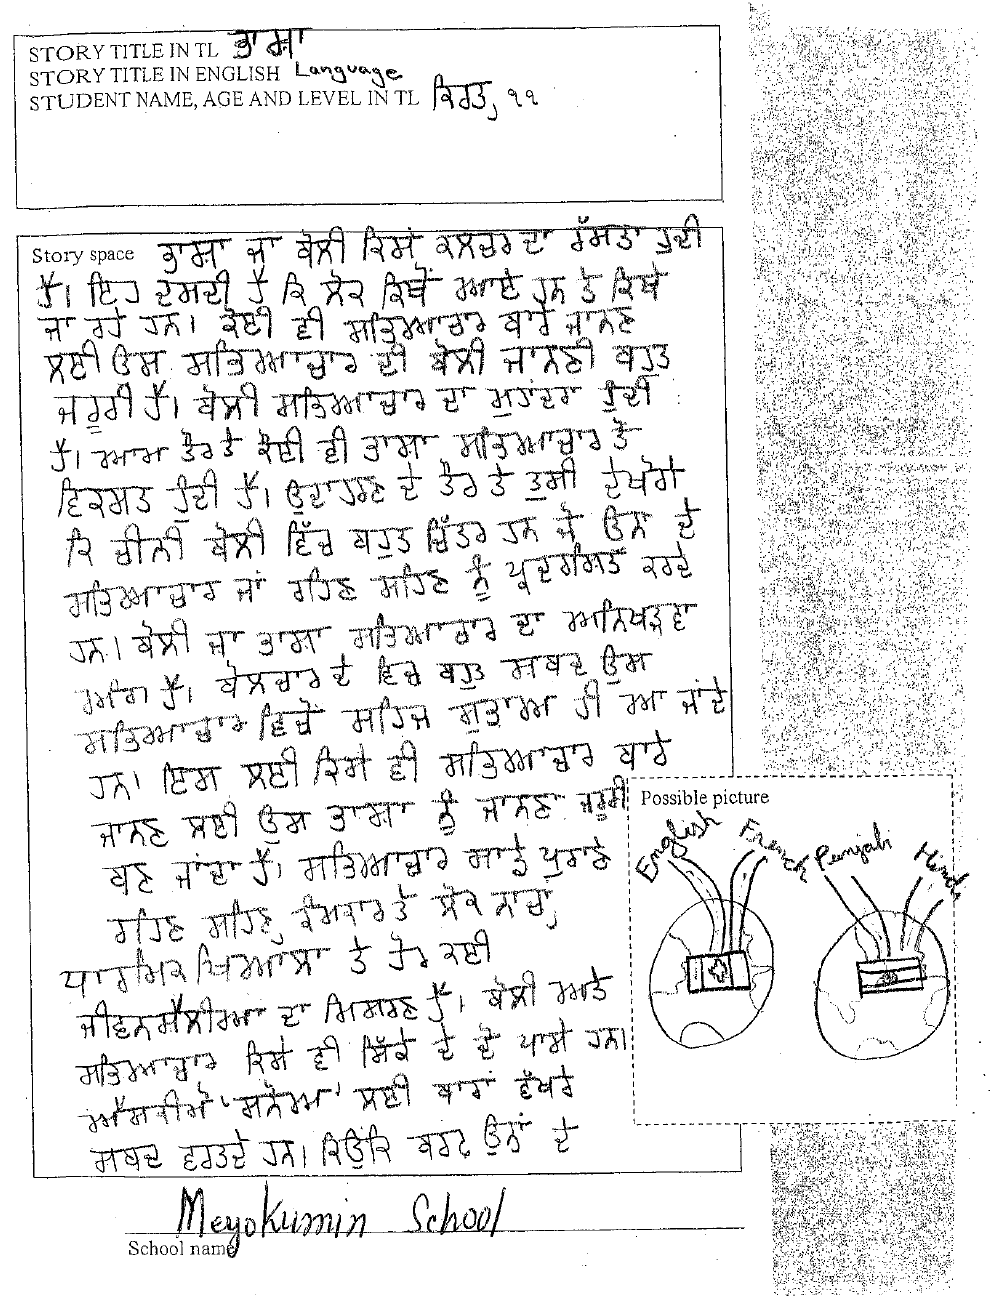 STORY TITLE IN TL ਭਾਸਾ
STORY TITLE IN ENGLISH Language
STUDENT NAME, AGE AND LEVEL IN TL ਕਿਰਤ, ੧੧
Story space ਭਾਸਾ ਜਾ ਬੋਲੀ ਕਿਸੇ ਕਲਚਰ ਦਾ ਰੱਸਤਾ ਹੁਦੀ
ਹੈ। ਇਹ ਦਸਦੀ ਹੈ ਕਿ ਲੋਕ ਕਿਥੋਂ ਆਏ ਹਨ ਤੇ ਕਿਥੇ
ਜਾ ਰਹੇ ਹਨ। ਕੋਈ ਵੀ ਸਭਿਆਚਾਰ ਬਾਰੇ ਜਾਨਣ
ਲਈ ਉਸ ਸਭਿਆਚਾਰ ਦੀ ਬੋਲੀ ਜਾਨਣੀ ਬਹੁਤ
ਜਰੂਰੀ ਹੈ। ਬੋਲੀ ਸਭਿਆਚਾਰ ਦਾ ਮੁਹਾਂਦਰਾ ਹੁੰਦੀ
ਹੈ। ਆਮ ਤੌਰ ਤੇ ਕੋਈ ਵੀ ਭਾਸਾ ਸਭਿਆਚਾਰ ਤੋਂ
ਵਿਕਸਤ ਹੁੰਦੀ ਹੈ। ਉਦਾਹਰਣ ਦੇ ਤੌਰ ਤੇ ਤੁਸੀ ਦੇਖੋਗੇ
ਕਿ ਚੀਨੀ ਬੋਲੀ ਵਿੱਚ ਬਹੁਤ ਚਿੱਤਰ ਹਨ ਜੋ ਉਨ ਦੇ
ਸਭਿਆਚਾਰ ਜਾਂ ਰਹਿਣ ਸਹਿਣ ਨੂੰ ਪ੍ਰਦਰਸਿਤ ਕਰਦੇ
ਹਨ। ਬੋਲੀ ਜਾ ਭਾਸਾ ਸਭਿਆਚਾਰ ਦਾ ਅਨਿਖੜਵਾ
ਅੰਗ ਹੈ। ਬੋਲਚਾਰ ਦੇ ਵਿਚ ਬਹੁਤ ਸਬਦ ਉਸ
ਸਭਿਆਚਾਰ ਵਿਚੋਂ ਸਹਿਜ ਸੁਭਾਅ ਹੀ ਆ ਜਾਂਦੇ
ਹਨ। ਇਸ ਲਈ ਕਿਸੇ ਵੀ ਸਭਿਆਚਾਰ ਬਾਰੇ
ਜਾਨਣ ਲਈ ਉਸ ਭਾਸਾ ਨੂੰ ਜਾਨਣਾ ਜਰੂਰੀ
ਬਣ ਜਾਂਦਾ ਹੈ। ਸਭਿਆਚਾਰ ਸਾਡੇ ਪੁਰਾਣੇ
ਰਹਿਣ ਸਹਿਣ, ਕੰਮਕਾਰ ਤੇ ਲੋਕ ਨਾਚਾਂ,
ਧਾਰਮਿਕ ਖਿਆਲਾ ਤੇ ਹੋਰ ਕਈ
ਜੀਵਨਸੈਲੀਆ ਦਾ ਮਿਸਰਣ ਹੈ। ਬੋਲੀ ਅਤੇ
ਸਭਿਆਚਾਰ ਕਿਸੇ ਵੀ ਸਿੱਕੇ ਦੇ ਦੋ ਪਾਸੇ ਹਨ।
ਐਸਕੀਮੋ 'ਸਨੋਅ' ਲਈ ਬਾਰਾਂ ਵੱਖਰੇ
ਸਬਦ ਵਰਤਦੇ ਹਨ। ਕਿਉਂਕਿ ਬਰਫ ਉਨਾਂ ਦੇ
Possible picture
English French Punjabi Hindi
Meyokumin School
School name